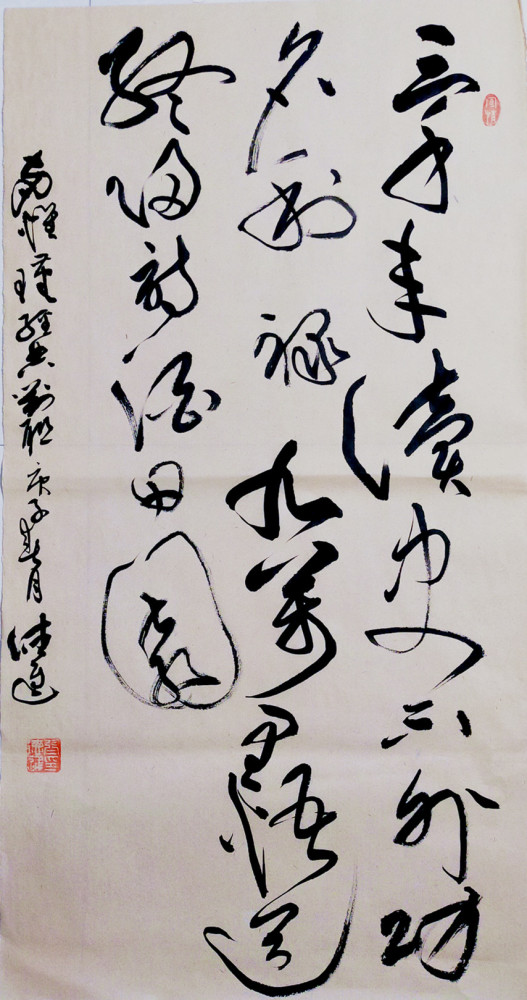 三千年讀史不外功
名利祿九萬里悟道
終歸詩酒田園
南懷瑾經典對聯 庚子春月